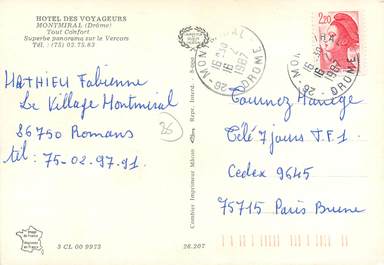 HOTEL DES VOYAGEURS
MONTMIRAL (Drôme)
Tout Confort
Superbe panorama sur le Vercors
Tél. : (75) 02.75.63
MATHIEU Fabienne
Le Village Montmiral
26750 Romans
tél : 75-02-97-91
26
3 CL 00 9973
26.207
Combier Imprimeur Mâcon
2,20
26 - MONTMIRAL - DROME
1987
26 - DROME
1987
Tournez Manège
Télé 7 jours T.F.1
Cedex 9645
75715 Paris Brune